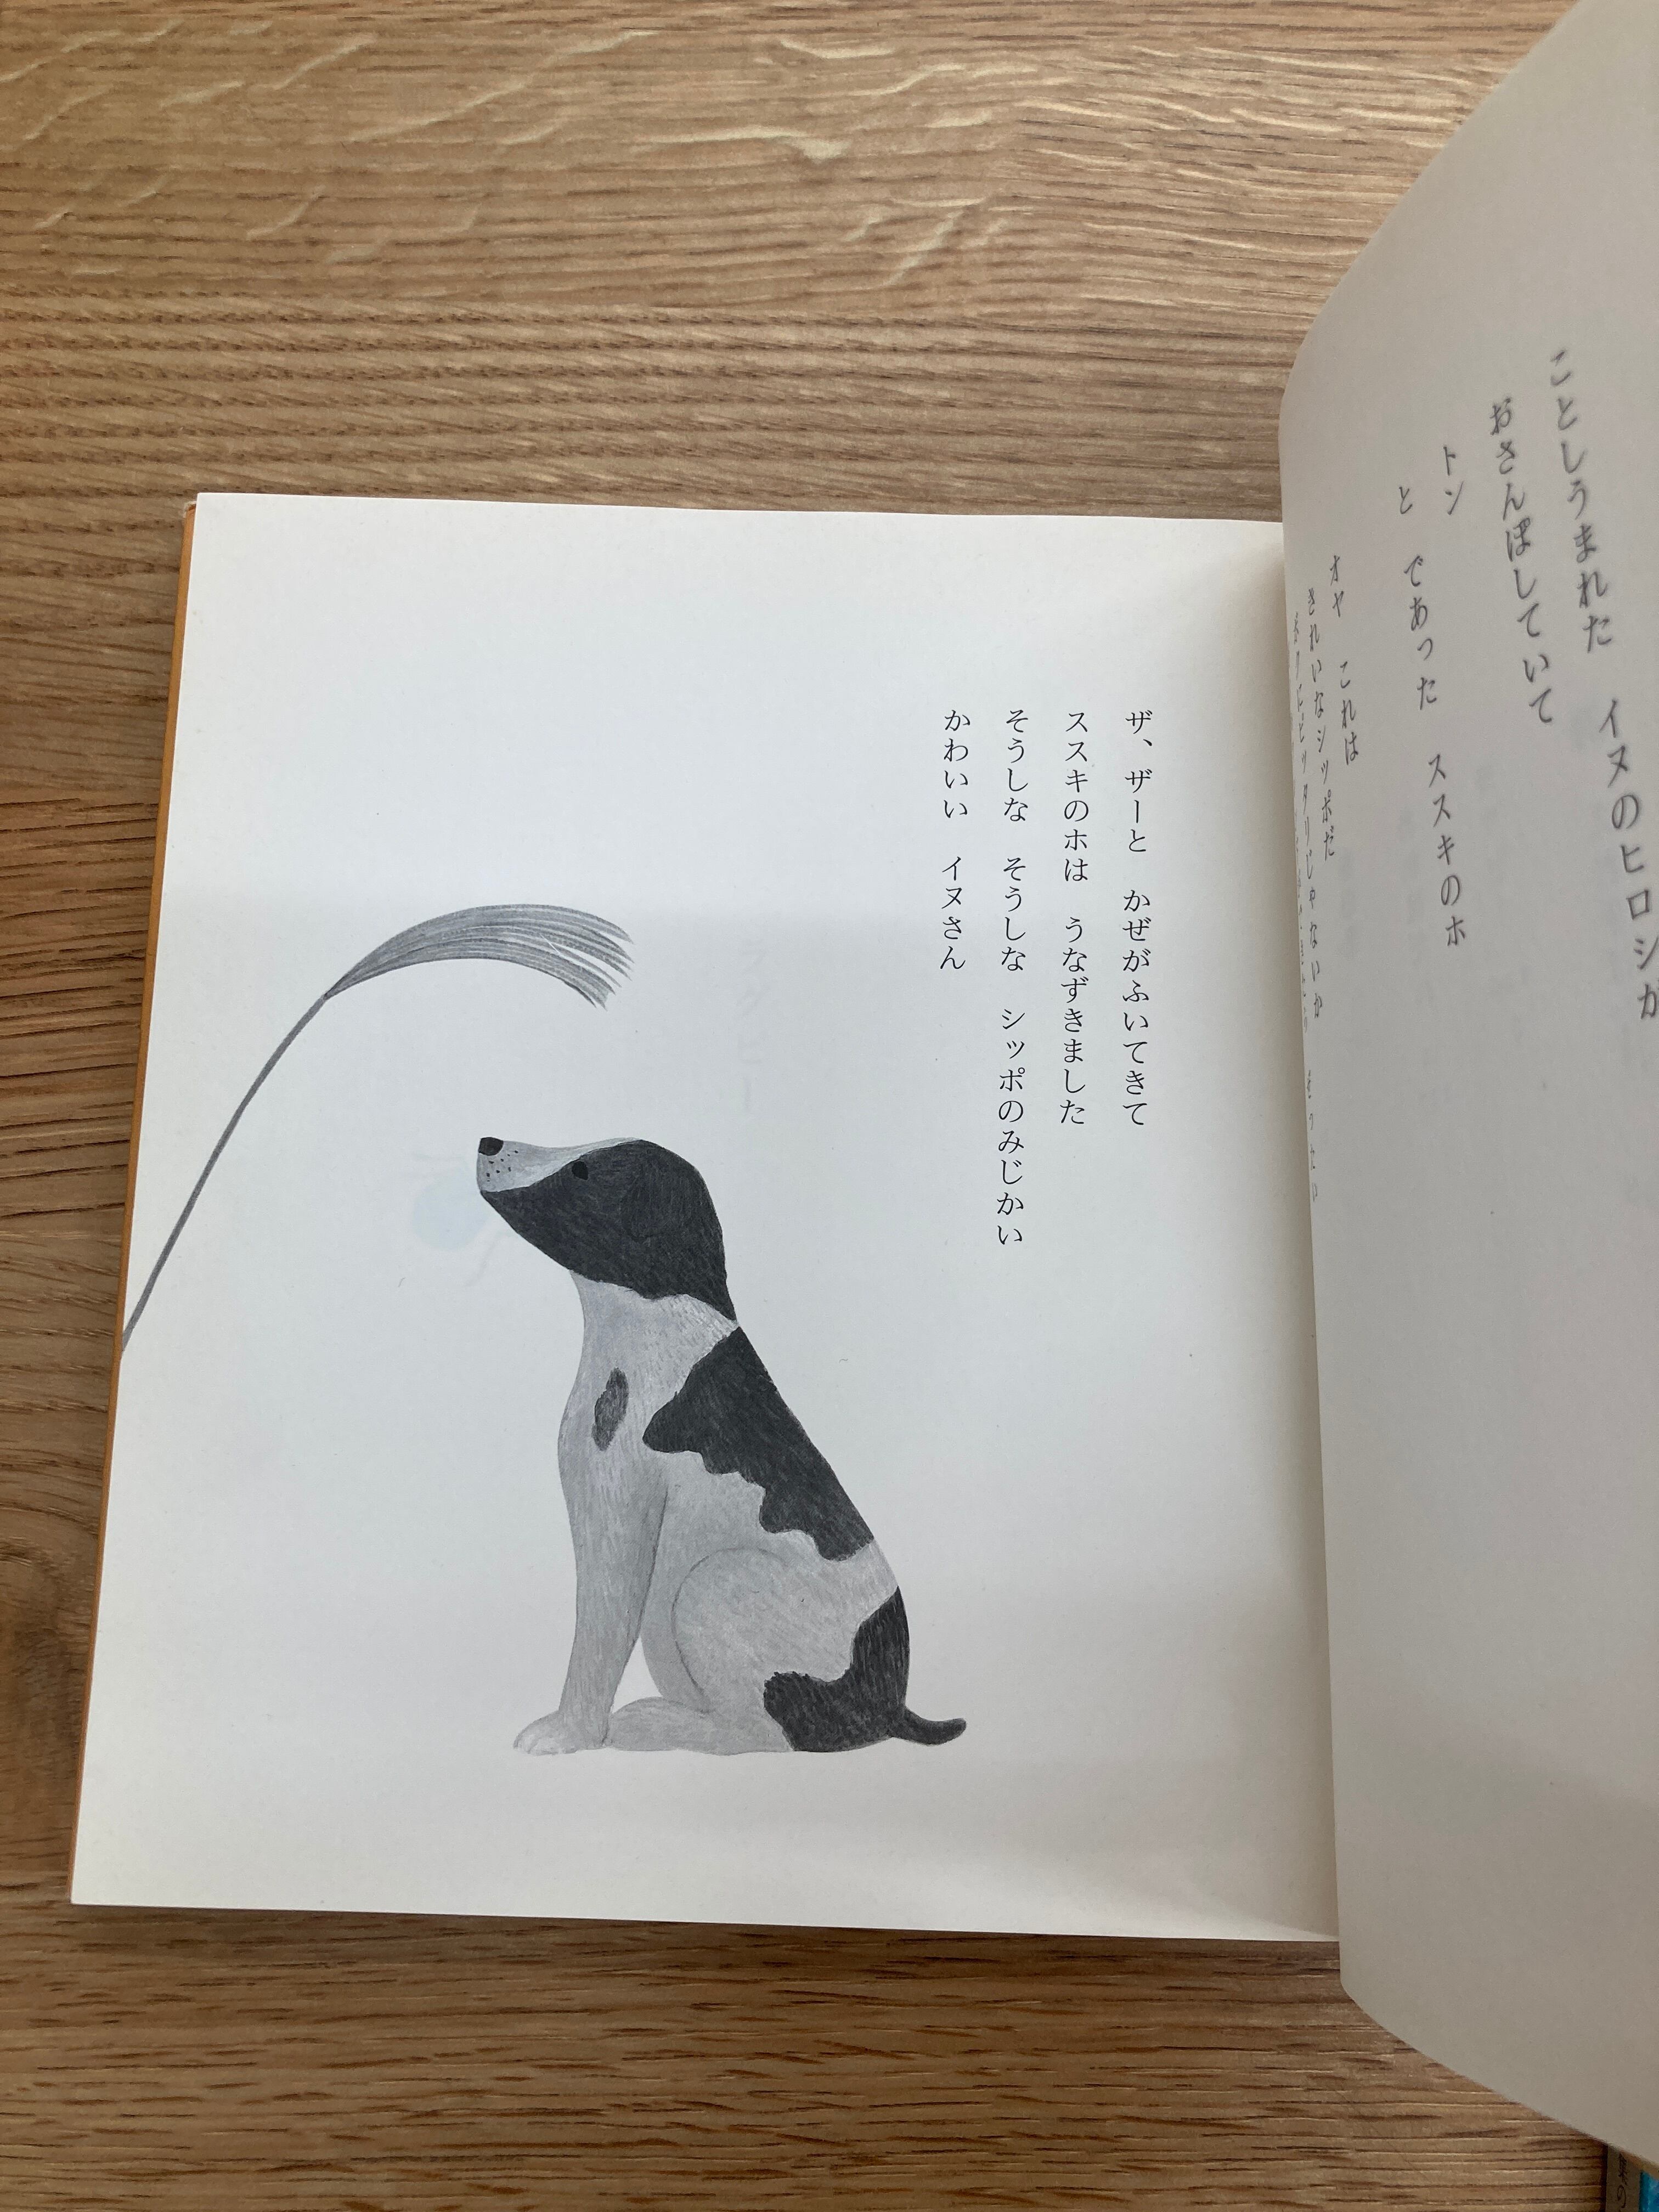 ことしうまれた　イヌのヒロシが
おさんぽしていて
トン
と　であった　ススキのホ
オヤ　これは
きれいなシッポだ
ボクにピッタリじゃないか
ザ、ザーと　かぜがふいてきて
ススキのホは　うなずきました
そうしな　そうしな　シッポのみじかい
かわいい　イヌさん